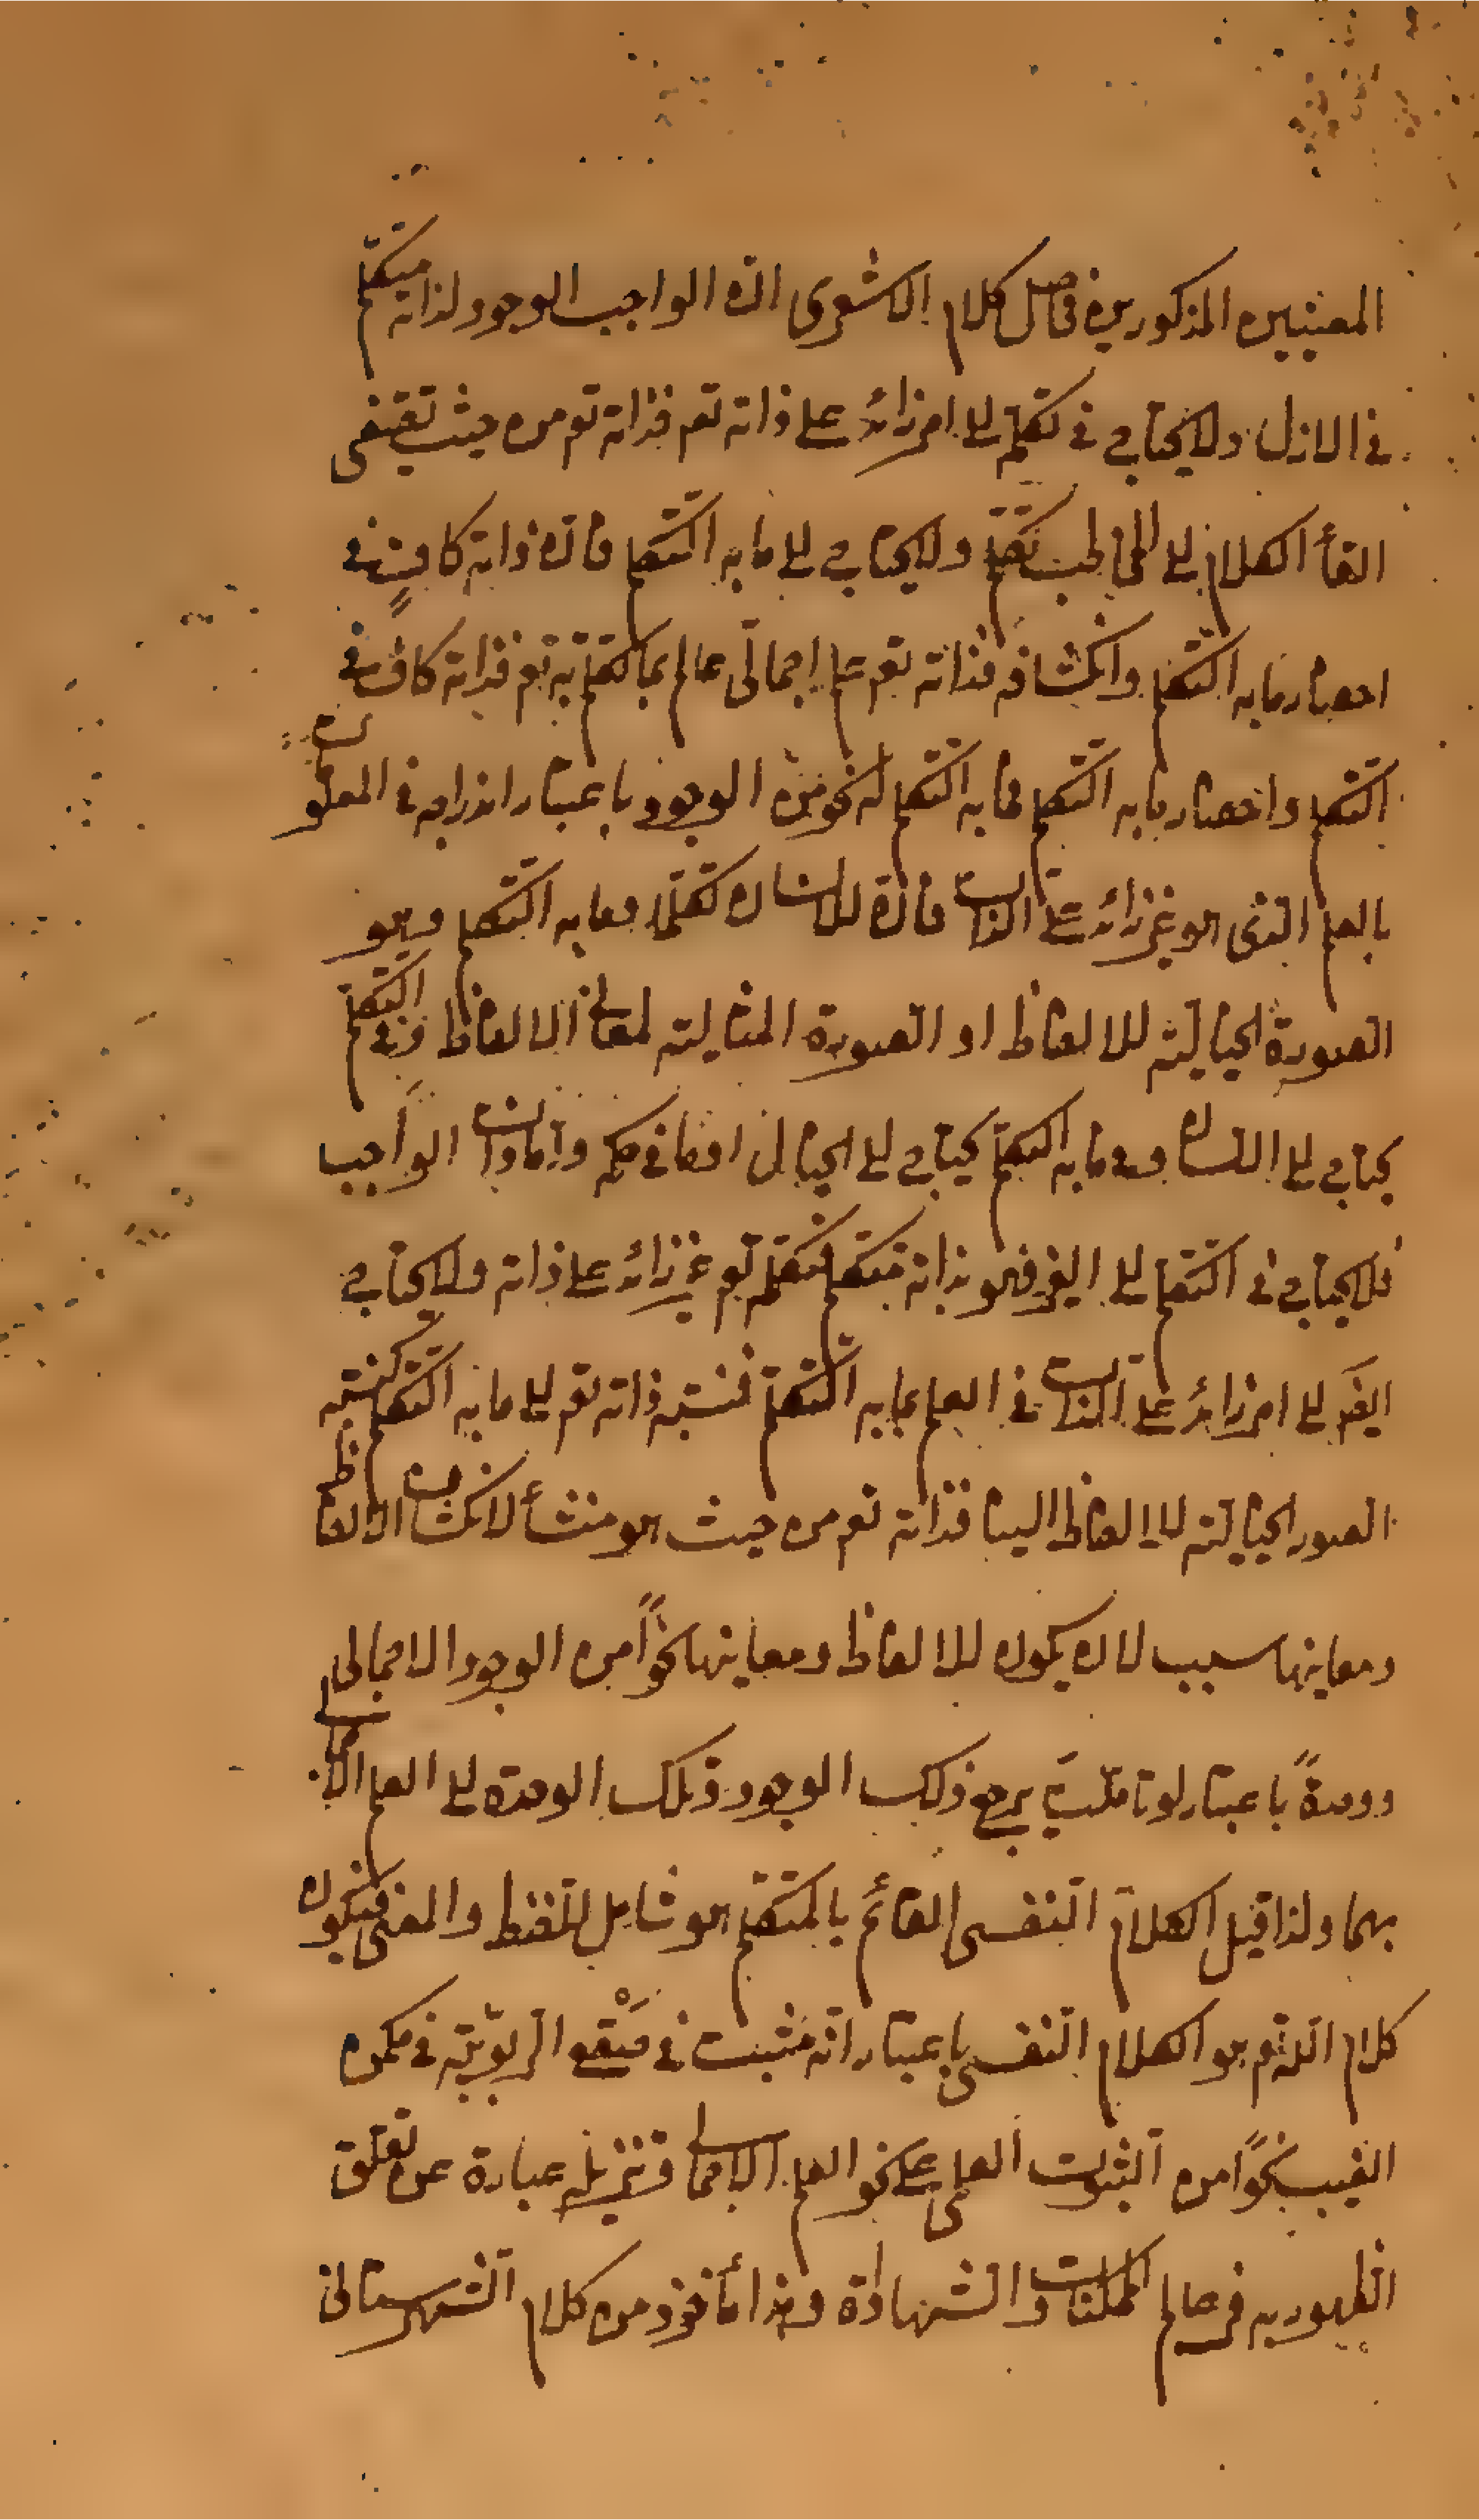 المعنيين المذكورين فحاصل كلام الاشعرى ان الواجب الوجود لذاته متكلم
فى الازل ولا يحتاج فى تكلمه الى امر زائد على ذاته تع فذاته تع من حيث تقتضى
القأ الكلام الى المخاطب تكلم ولا يحتاج الى ما به التكلم فان ذاته كافية فى
احضار ما به التكلم وانكشافه فذاته تع علم اجمالى عالم بما تكلم به تع فذاته كاف فى
التكلم واحضار ما به التكلم فما به التكلم له نحو من الوجود باعتبار اندراجه فى المعلومات
بالعلم الذى هو غير زائد على الذات فان للانسان تكلما وما به التكلم وهو
الصورة الخيالية للالفاظ او الصورة المثالية لمعانى الالفاظ ففى التكلم
يحتاج الى اللسان وفى ما به التكلم يحتاج الى الخيال او ما فى حكمه واما ذات الواجب
فلا يحتاج فى التكلم الى الغير فهو بذاته متكلم فتكلمه تع غير زائد على ذاته ولا يحتاج
ايضا الى امر زائد على الذات فى العلم بما به التكلم فنسبة ذاته تع الى ما به التكلم كنسبة
الصور الخيالية للالفاظ الينا فذاته تع من حيث هو منشأ لانكشاف الالفاظ
ومعاينها سبب لان يكون للالفاظ ومعاينها نحواً من الوجود الاجمالى
ووحدةً باعتبار لوتاملت يرجع ذلك الوجود وتلك الوحدة الى العلم الاجمالى
بهما ولذا قيل الكلام النفسى القائم بالمتكلم هو شامل للفظ والمعنى فيكون
كلام الله تع هو الكلام النفسى باعتبار انه مثبت فى صقع الربوبية فى مكمن
الغيب نحواً من الثبوت العلمى على نحو العلم الاجمالى وتنزيله عبارة عن تعلق
الظهور به فى عالم الممكنات والشهادة وهذا مأخوذ من كلام الشهرستانى